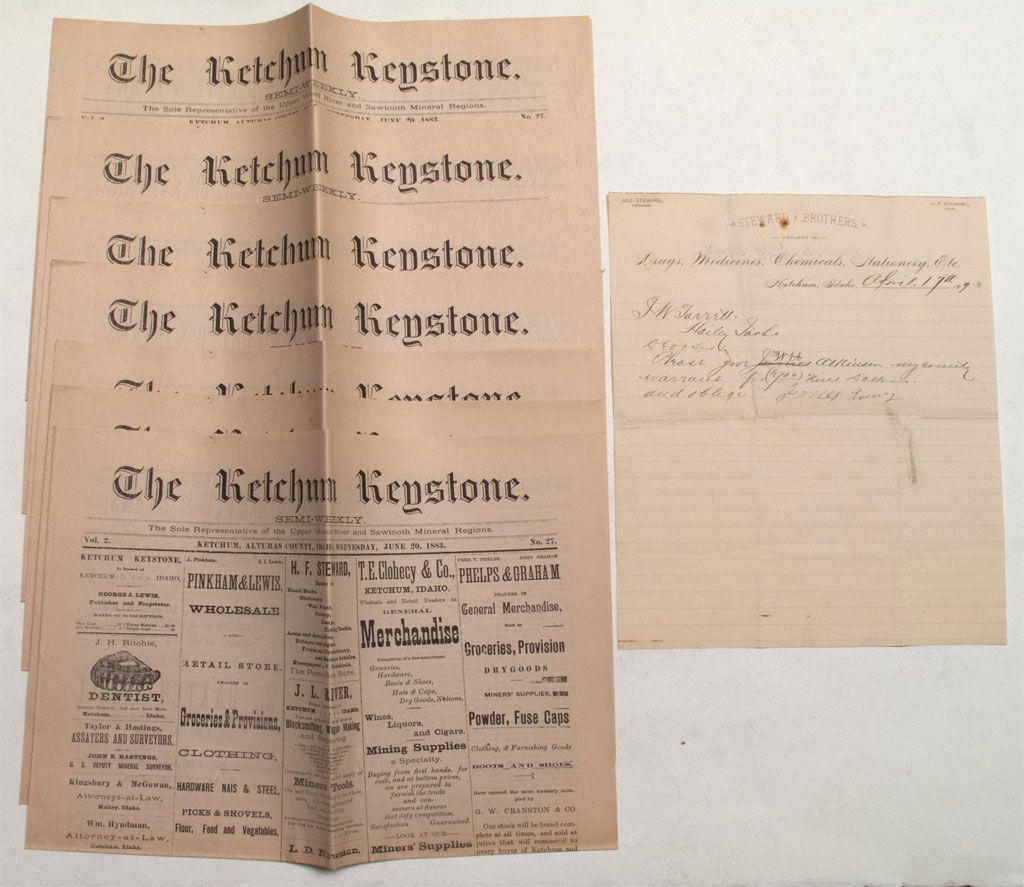 The Ketchum Keystone.
SEMI-WEEKLY.
The Sole Representative of the Upper Wood River and Sawtooth Mineral Regions.
Vol. 2. KETCHUM, ALTURAS COUNTY, JUNE 20, 1883. No. 27.
The Ketchum Keystone.
SEMI-WEEKLY.
The Ketchum Keystone.
The Ketchum Keystone.
The Ketchum Keystone.
SEMI-WEEKLY.
The Sole Representative of the Upper Wood River and Sawtooth Mineral Regions.
Vol. 2. KETCHUM, ALTURAS COUNTY, IDAHO, WEDNESDAY, JUNE 20, 1883. No. 27.
KETCHUM KEYSTONE,
Is Issued at
KETCHUM, IDAHO,
GEORGE J. LEWIS,
Publisher and Proprietor.
RATES OF SUBSCRIPTION:
J. H. Ritchie,
DENTIST,
Ketchum, Idaho.
Taylor & Hastings,
ASSAYERS AND SURVEYORS,
JOHN B. HASTINGS,
U. S. DEPUTY MINERAL SURVEYOR,
Kingsbury & McGowan,
Attorneys-at-Law,
Hailey, Idaho.
Wm. Hyndman,
Attorney-at-Law,
Ketchum, Idaho.
J. Pinkham. I. I. Lewis.
PINKHAM & LEWIS,
WHOLESALE
—AND—
RETAIL STORE.
DEALERS IN
Groceries & Provisions,
CLOTHING,
HARDWARE NAIS & STEEL,
PICKS & SHOVELS,
Flour, Feed and Vegetables,
H. F. STEWARD,
Dealer in
Blank Books,
Stationery,
Wall Paper,
Cutlery,
Fishing Tackle,
Arms and Ammunition,
Tobacco and Cigars,
The Post Office Store.
J. L. RIVER,
KETCHUM IDAHO.
Blacksmithing, Wagon Making
and Repairing.
Miners' Tools.
T.E. Clohecy & Co.,
KETCHUM, IDAHO.
Wholesale and Retail Dealers in
GENERAL
Merchandise
Comprising of a fine assortment
Groceries,
Hardware,
Boots & Shoes,
Hats & Caps,
Dry Goods, Notions,
Wines,
Liquors,
and Cigars.
Mining Supplies
a Specialty.
Buying from first hands, for
cash, and at bottom prices,
we are prepared to
furnish the trade
and con-
sumers at figures
that defy competition.
Satisfaction Guaranteed.
—LOOK AT OUR—
Miners' Supplies
FRED T. PHELPS. JOHN GRAHAM.
PHELPS & GRAHAM
DEALERS IN
General Merchandise,
Such as
Groceries, Provision
DRYGOODS
MINERS' SUPPLIES,
Powder, Fuse Caps
Clothing, & Furnishing Goods
BOOTS AND SHOES,
Have opened the store formerly occu-
pied by
G. W. CRANSTON & CO
Our stock will be found com-
plete at all times, and sold at
prices that will commend to
every buyer of Ketchum and
GEO. STEWARD, H. F. STEWARD,
STEWARD BROTHERS,
—DEALERS IN—
Drugs, Medicines, Chemicals, Stationery, Etc.
Ketchum, Idaho, April 17th 1893
Hailey Idaho
Please give Atkinson my county
warrant for
and oblige